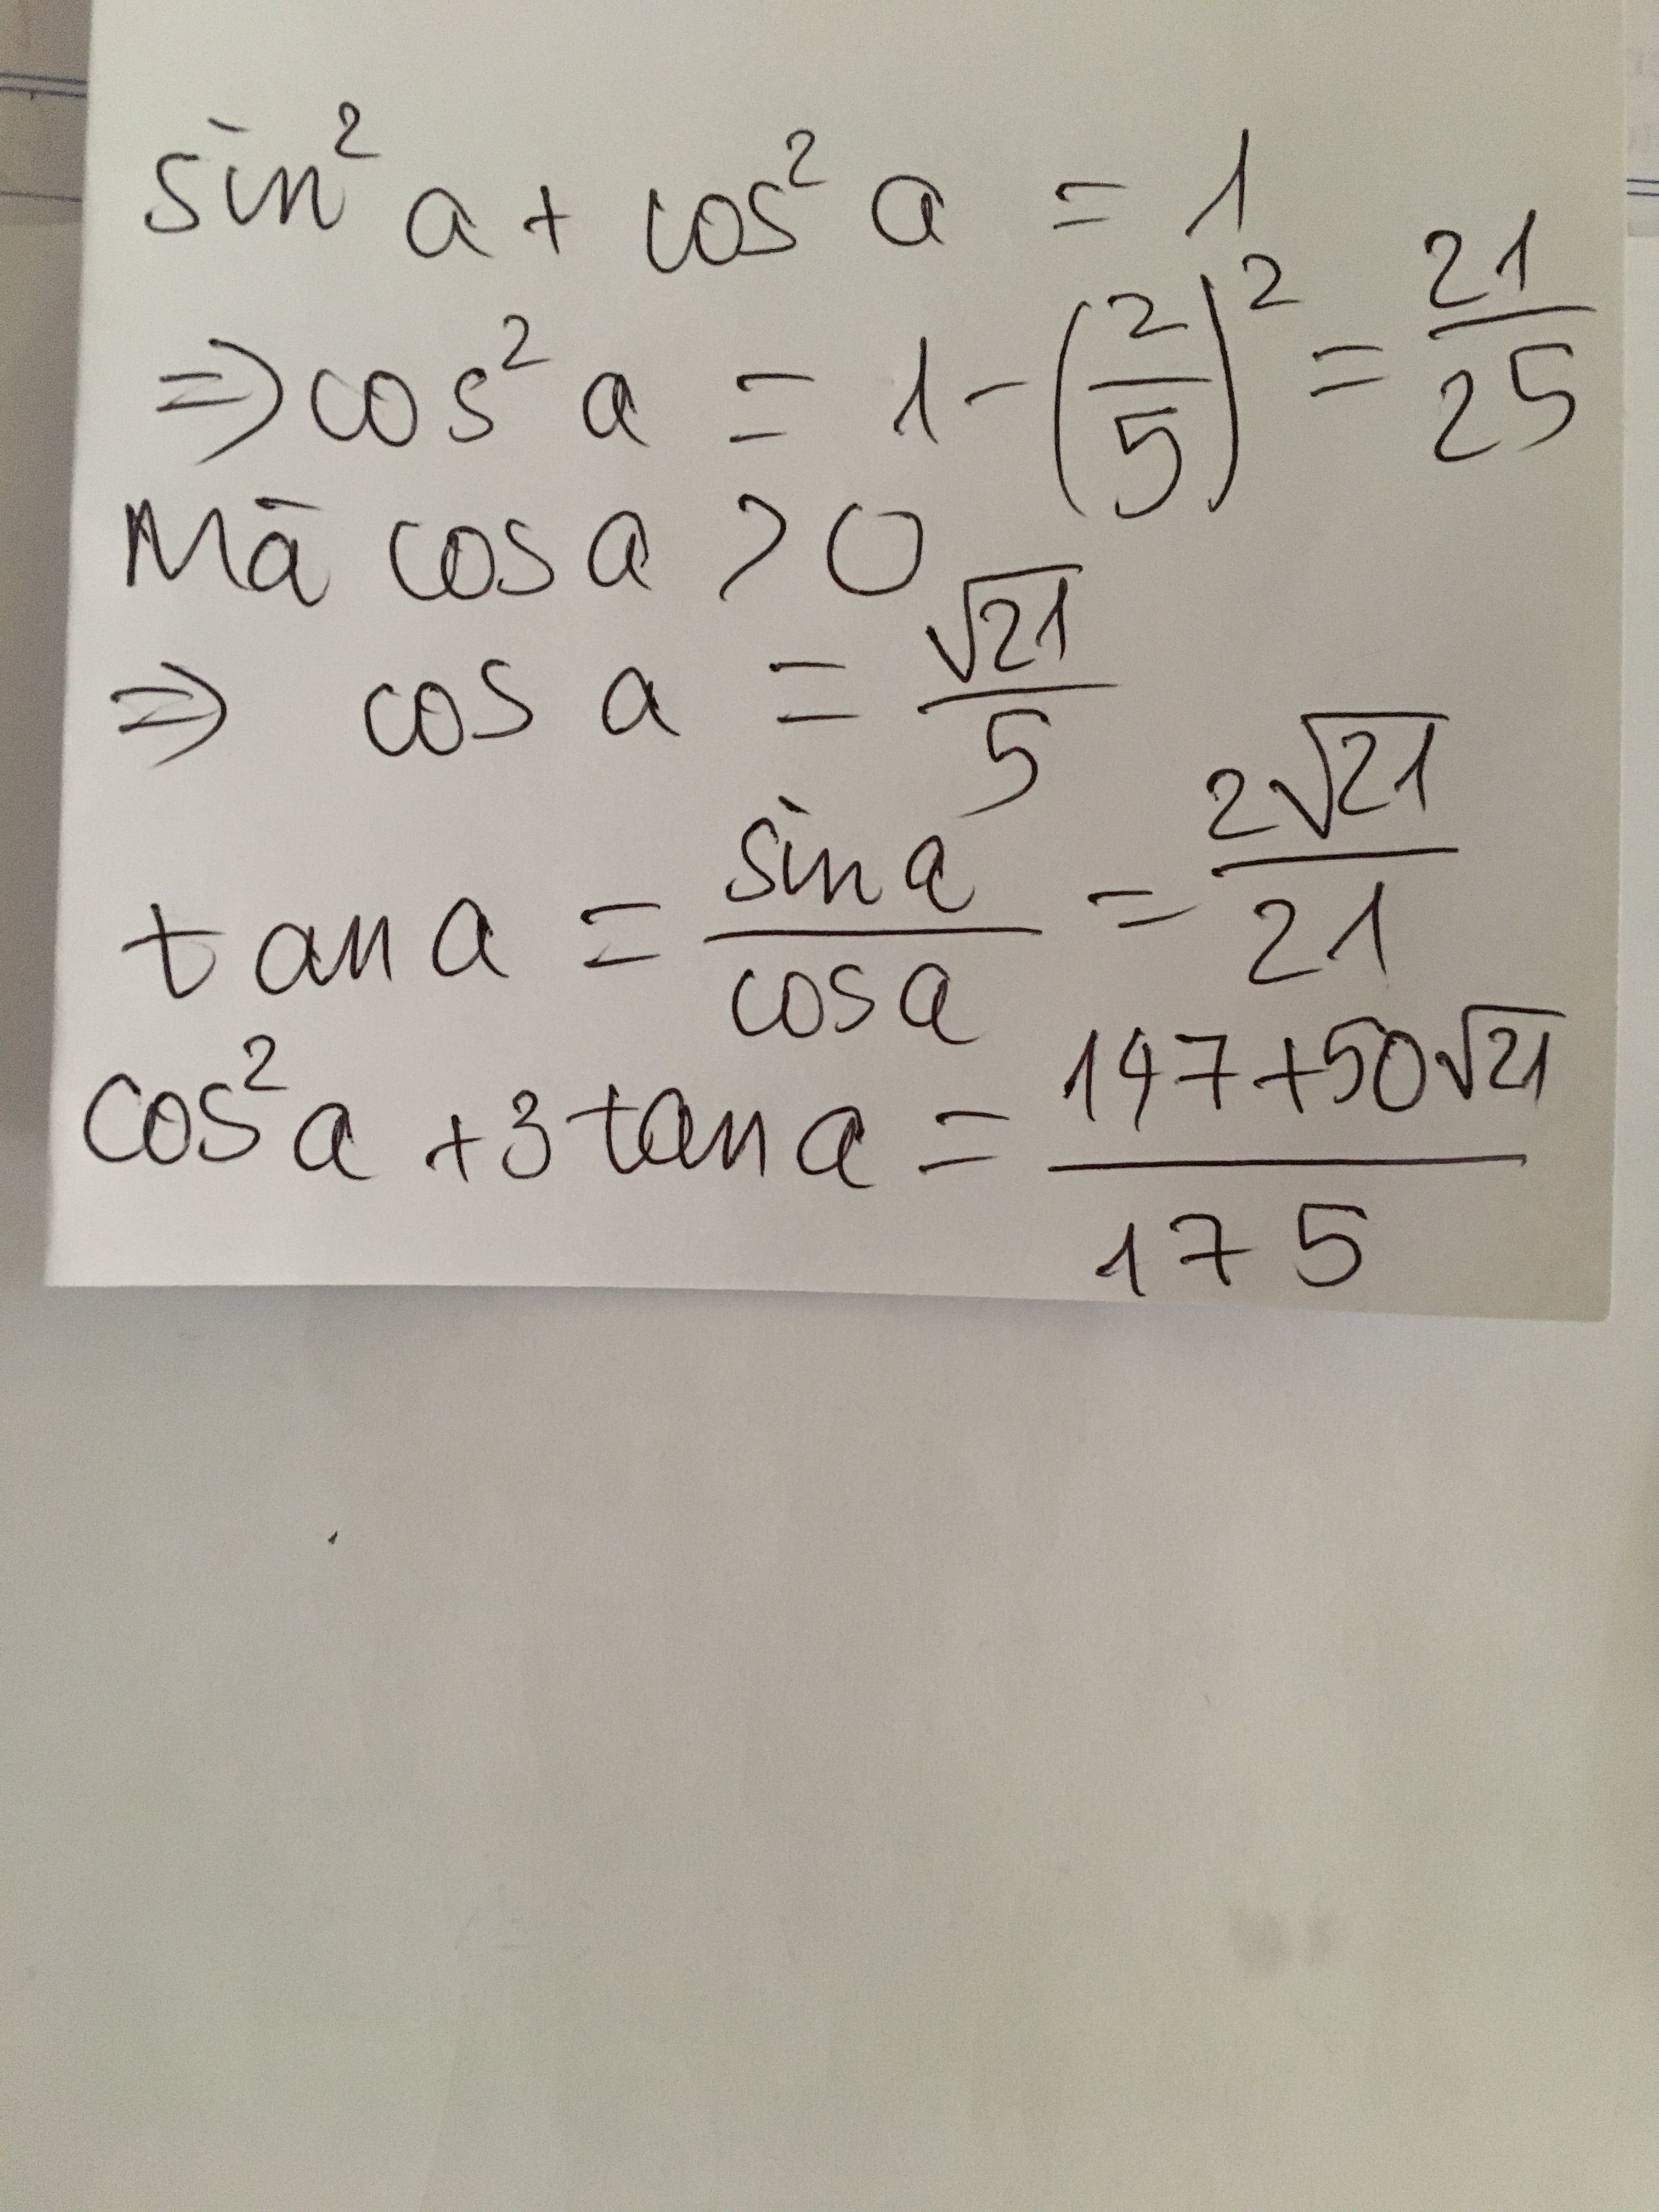 sin² a + cos² a = 1
⇒ cos² a = 1 - (2/5)² = 21/25
Mà cos a > 0
⇒ cos a = √21/5
tan a = sin a/cos a = 2√21/21
cos² a + 3 tan a = (147 + 50√21)/175